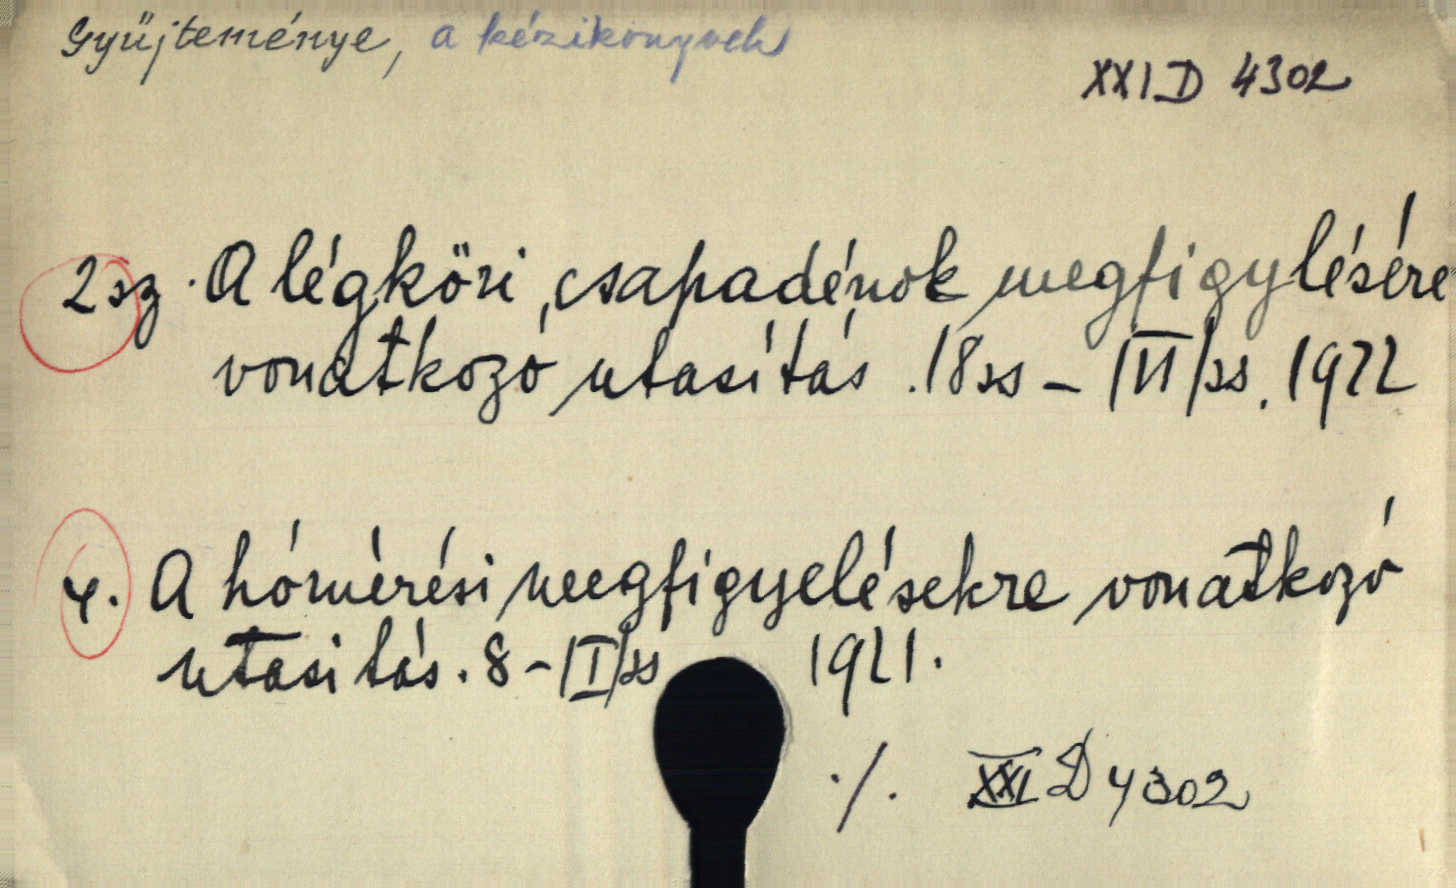 Gyűjteménye, a kézikönyvek
XXI D 4302
2sz. A légköri csapadékok megfigylésére
vonatkozó utasítás. 18ss - |VI|ss. 1922
4. A hómérési megfigyelésekre vonatkozó
utasitás. 8 - |I|ss 1921.
./. XXI D 4302